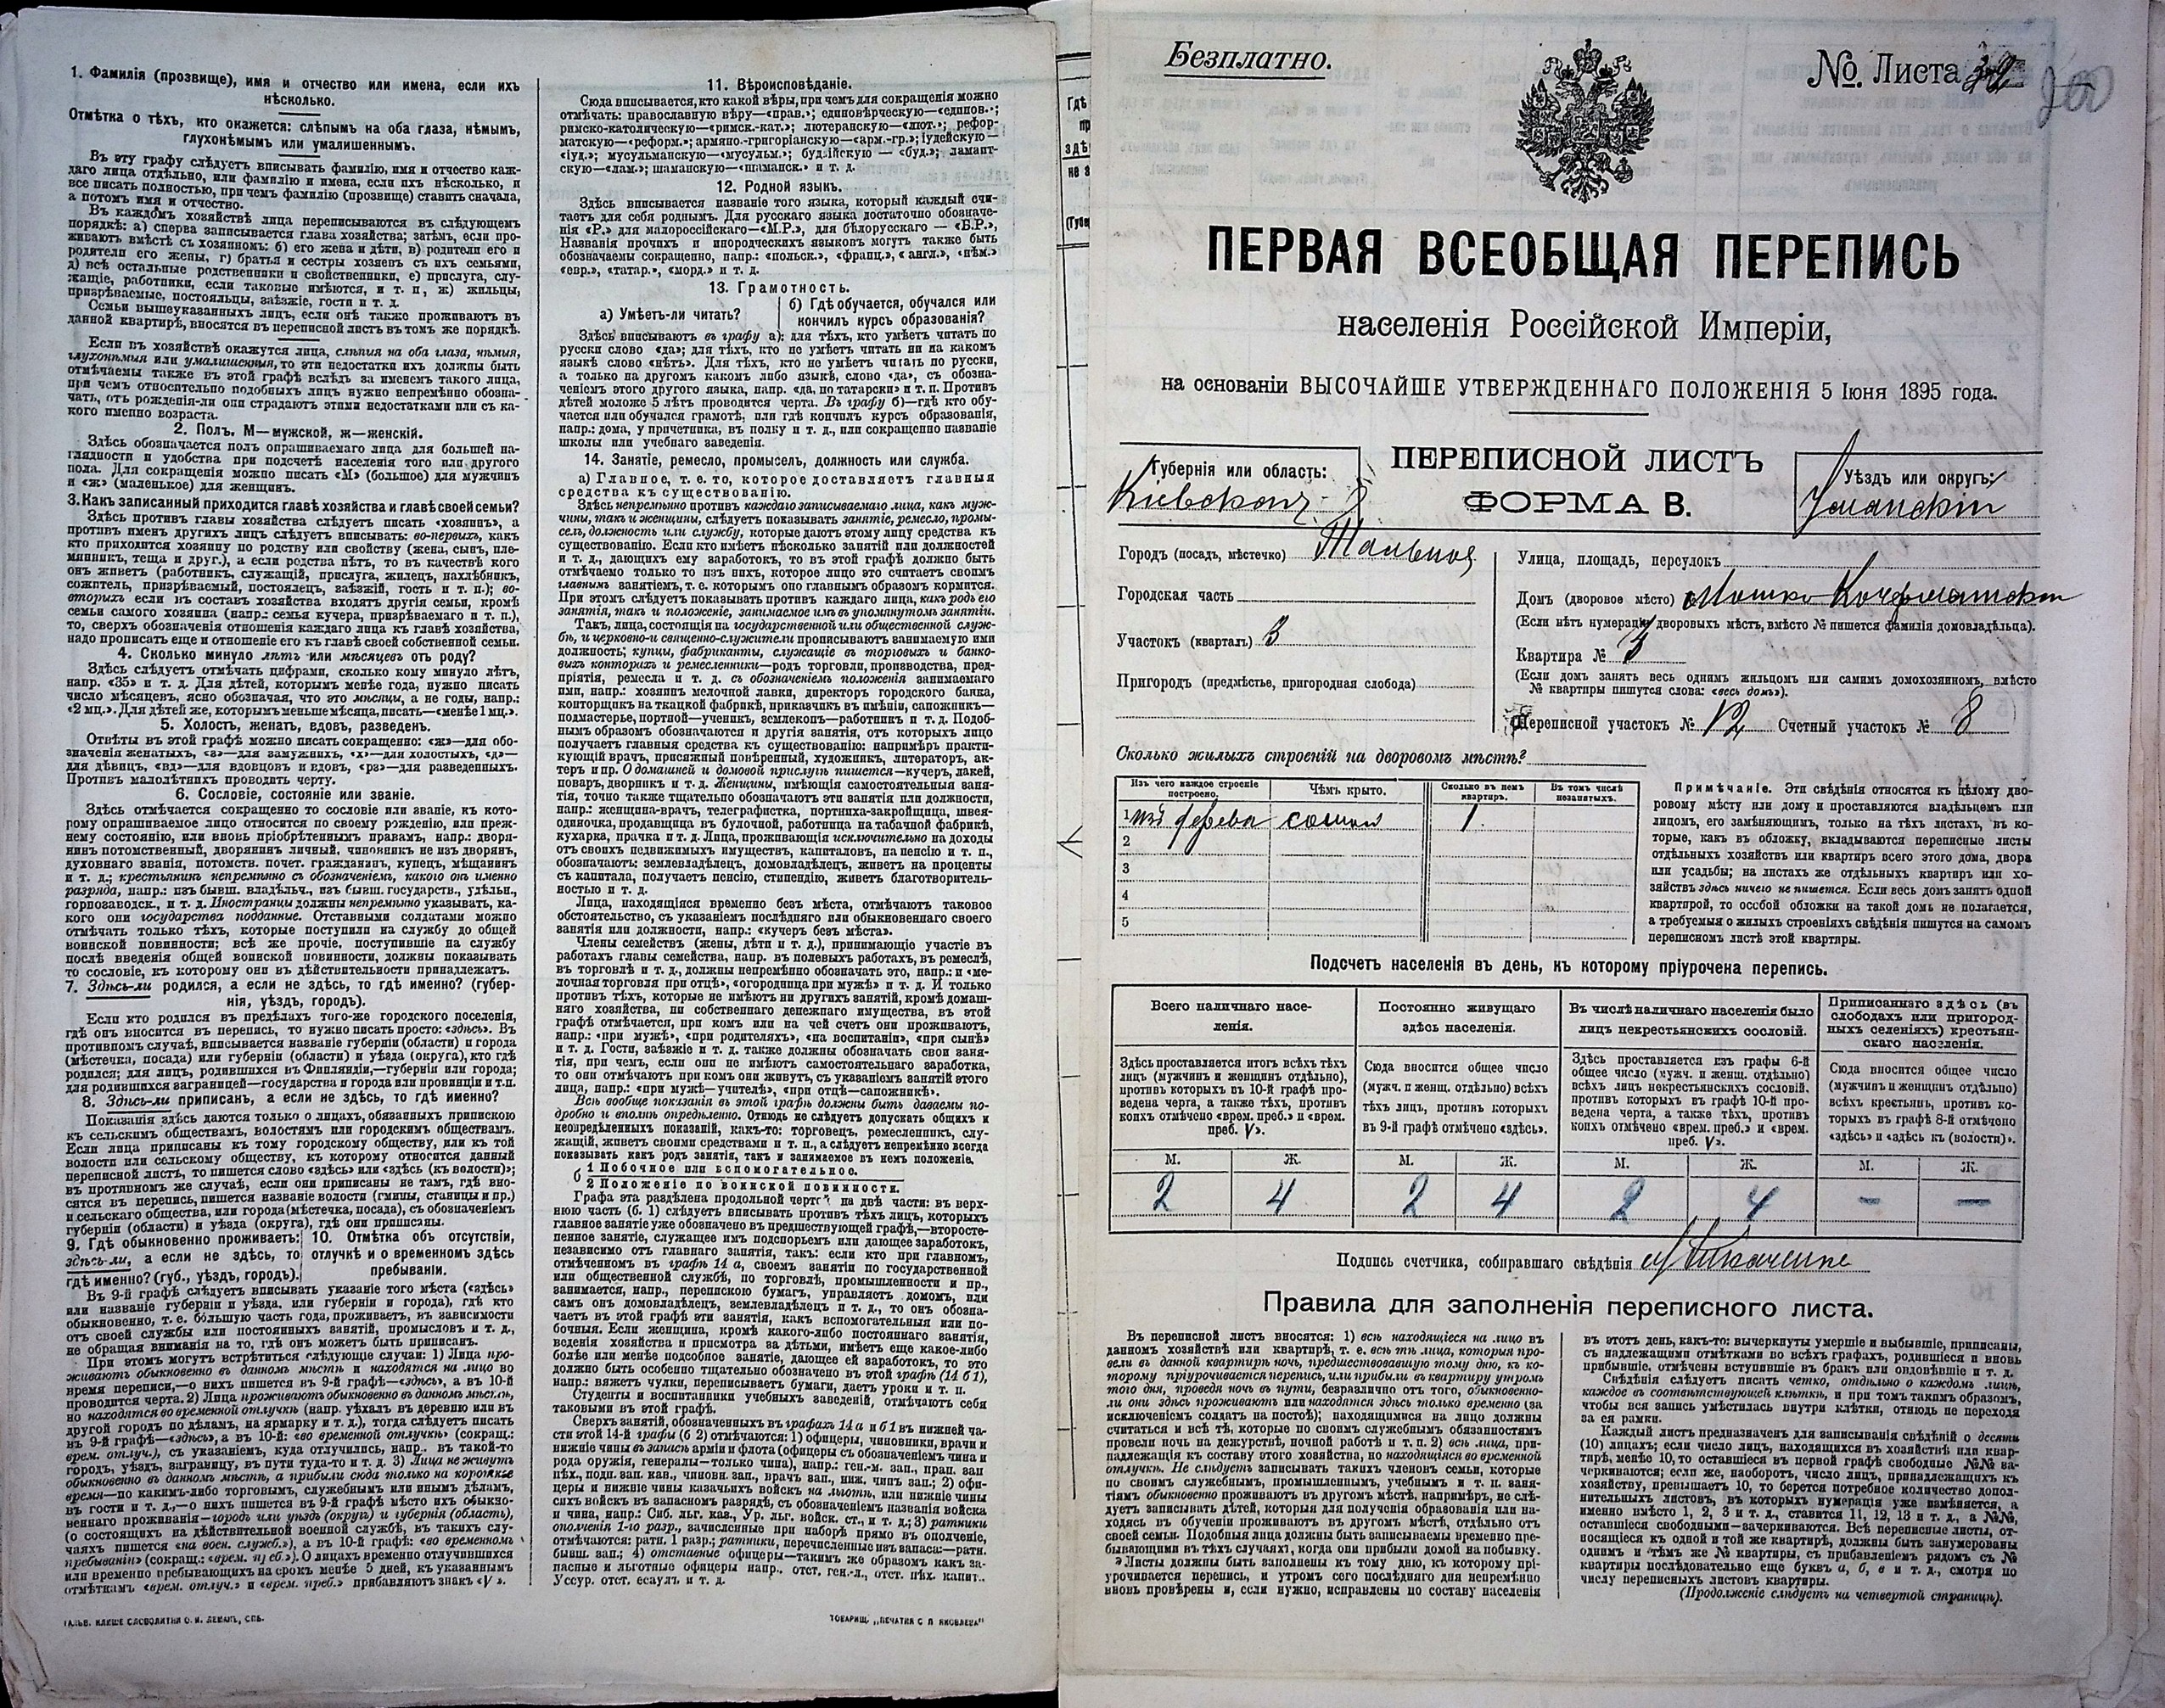 1. Фамилія (прозвище), имя и отчество или имена, если ихъ
нѣсколько.
Отмѣтка о тѣхъ, кто окажется: слѣпымъ на оба глаза, нѣмымъ,
глухонѣмымъ или умалишеннымъ.
Въ эту графу слѣдуетъ вписывать фамилію, имя и отчество каж-
даго лица отдѣльно, или фамилію и имена, если ихъ нѣсколько, и
все писать полностью, при чемъ фамилію (прозвище) ставить сначала,
а потомъ имя и отчество.
Въ каждомъ хозяйствѣ лица переписываются въ слѣдующемъ
порядкѣ: а) сперва записывается глава хозяйства; затѣмъ, если про-
живаютъ вмѣстѣ съ хозяиномъ: б) его жена и дѣти, в) родители его и
родители его жены, г) братья и сестры хозяевъ съ ихъ семьями,
д) всѣ остальные родственники и свойственники, е) прислуга, слу-
жащіе, работники, если таковые имѣются, и т. п, ж) жильцы,
призрѣваемые, постояльцы, заѣзжіе, гости и т. п.
Семьи вышеуказанныхъ лицъ, если онѣ также проживаютъ въ
данной квартирѣ, вносятся въ переписной листъ въ томъ же порядкѣ.
Если въ хозяйствѣ окажутся лица, слѣпыя на оба глаза, нѣмыя,
глухонѣмыя или умалишенныя, то эти недостатки ихъ должны быть
отмѣчаемы также въ этой графѣ вслѣдъ за именемъ такого лица,
при чемъ относительно подобныхъ лицъ нужно непремѣнно обозна-
чать, отъ рожденія-ли они страдаютъ этими недостатками или съ ка-
кого именно возраста.
2. Полъ. М—мужской, ж—женскій.
Здѣсь обозначается полъ опрашиваемаго лица для большей на-
глядности и удобства при подсчетѣ населенія того или другого
пола. Для сокращенія можно писать «М» (большое) для мужчинъ
и «ж» (маленькое) для женщинъ.
3. Какъ записанный приходится главѣ хозяйства и главѣ своей семьи?
Здѣсь противъ главы хозяйства слѣдуетъ писать «хозяинъ», а
противъ именъ другихъ лицъ слѣдуетъ вписывать: во-первыхъ, какъ
кто приходится хозяину по родству или свойству (жена, сынъ, пле-
мянникъ, теща и друг.), а если родства нѣтъ, то въ качествѣ кого
онъ живетъ (работникъ, служащій, прислуга, жилецъ, нахлѣбникъ,
сожитель, призрѣваемый, постоялецъ, заѣзжій, гость и т. п.); во-
вторыхъ если въ составъ хозяйства входятъ другія семьи, кромѣ
семьи самого хозяина (напр.: семья кучера, призрѣваемаго и т. п.),
то, сверхъ обозначенія отношенія каждаго лица къ главѣ хозяйства,
надо прописать еще и отношеніе его къ главѣ своей собственной семьи.
4. Сколько минуло лѣтъ или мѣсяцевъ отъ роду?
Здѣсь слѣдуетъ отмѣчать цифрами, сколько кому минуло лѣтъ,
напр. «35» и т. д. Для дѣтей, которымъ менѣе года, нужно писать
число мѣсяцевъ, ясно обозначая, что это мѣсяцы, а не годы, напр.:
«2 мц.». Для дѣтей же, которымъ меньше мѣсяца, писать—«менѣе 1 мц.».
5. Холостъ, женатъ, вдовъ, разведенъ.
Отвѣты въ этой графѣ можно писать сокращенно: «ж»—для обо-
значенія женатыхъ, «з»—для замужнихъ, «х»—для холостыхъ, «д»—
для дѣвицъ, «вд»—для вдовцовъ и вдовъ, «рз»—для разведенныхъ.
Противъ малолѣтнихъ проводить черту.
6. Сословіе, состояніе или званіе.
Здѣсь отмѣчается сокращенно то сословіе или званіе, къ кото-
рому опрашиваемое лицо относится по своему рожденію, или преж-
нему состоянію, или вновь пріобрѣтеннымъ правамъ, напр.: дворя-
нинъ потомственный, дворянинъ личный, чиновникъ не изъ дворянъ,
духовнаго званія, потомств. почет. гражданинъ, купецъ, мѣщанинъ
и т. д.; крестьянинъ непремѣнно съ обозначеніемъ, какого онъ именно
разряда, напр.: изъ бывш. владѣльч., изъ бывш. государств., удѣльн.,
горнозаводск., и т. д. Иностранцы должны непремѣнно указывать, ка-
кого они государства подданные. Отставными солдатами можно
отмѣчать только тѣхъ, которые поступили на службу до общей
воинской повинности; всѣ же прочіе, поступившіе на службу
послѣ введенія общей воинской повинности, должны показывать
то сословіе, къ которому они въ дѣйствительности принадлежатъ.
7. Здѣсь-ли родился, а если не здѣсь, то гдѣ именно? (губер-
нія, уѣздъ, городъ).
Если кто родился въ предѣлахъ того-же городского поселенія,
гдѣ онъ вносится въ перепись, то нужно писать просто: «здѣсь». Въ
противномъ случаѣ, вписывается названіе губерніи (области) и города
(мѣстечка, посада) или губерніи (области) и уѣзда (округа), кто гдѣ
родился; для лицъ, родившихся въ Финляндіи,—губерніи или города;
для родившихся заграницей—государства и города или провинціи и т.п.
8. Здѣсь-ли приписанъ, а если не здѣсь, то гдѣ именно?
Показанія здѣсь даются только о лицахъ, обязанныхъ припискою
къ сельскимъ обществамъ, волостямъ или городскимъ обществамъ.
Если лица приписаны къ тому городскому обществу, или къ той
волости или сельскому обществу, къ которому относится данный
переписной листъ, то пишется слово «здѣсь» или «здѣсь (къ волости)»;
въ противномъ же случаѣ, если они приписаны не тамъ, гдѣ вно-
сятся въ перепись, пишется названіе волости (гмины, станицы и пр.)
и сельскаго общества, или города (мѣстечка, посада), съ обозначеніемъ
губерніи (области) и уѣзда (округа), гдѣ они приписаны.
9. Гдѣ обыкновенно проживаетъ:
здѣсь-ли, а если не здѣсь, то
гдѣ именно? (губ., уѣздъ, городъ).
10. Отмѣтка объ отсутствіи,
отлучкѣ и о временномъ здѣсь
пребываніи.
Въ 9-й графѣ слѣдуетъ вписывать указаніе того мѣста («здѣсь»
или названіе губерніи и уѣзда, или губерніи и города), гдѣ кто
обыкновенно, т. е. бо́льшую часть года, проживаетъ, въ зависимости
отъ своей службы или постоянныхъ занятій, промысловъ и т. д.,
не обращая вниманія на то, гдѣ онъ можетъ быть приписанъ.
При этомъ могутъ встрѣтиться слѣдующіе случаи: 1) Лица про-
живаютъ обыкновенно въ данномъ мѣстѣ и находятся на лицо во
время переписи,—о нихъ пишется въ 9-й графѣ—«здѣсь», а въ 10-й
проводится черта. 2) Лица проживаютъ обыкновенно въ данномъ мѣстѣ,
но находятся во временной отлучкѣ (напр. уѣхалъ въ деревню или въ
другой городъ по дѣламъ, на ярмарку и т. д.), тогда слѣдуетъ писать
въ 9-й графѣ—«здѣсь», а въ 10-й: «во временной отлучкѣ» (сокращ.:
врем. отлуч.), съ указаніемъ, куда отлучились, напр. въ такой-то
городъ, уѣздъ, заграницу, въ пути туда-то и т. д. 3) Лица не живутъ
обыкновенно въ данномъ мѣстѣ, а прибыли сюда только на короткое
время—по какимъ-либо торговымъ, служебнымъ или инымъ дѣламъ,
въ гости и т. д.,—о нихъ пишется въ 9-й графѣ мѣсто ихъ обыкно-
веннаго проживанія—городъ или уѣздъ (округъ) и губернія (область),
(о состоящихъ на дѣйствительной военной службѣ, въ такихъ слу-
чаяхъ пишется «на воен. службѣ»), а въ 10-й графѣ: «во временномъ
пребываніи» (сокращ.: «врем. преб.»). О лицахъ временно отлучившихся
или временно пребывающихъ на срокъ менѣе 5 дней, къ указаннымъ
отмѣткамъ «врем. отлуч.» и «врем. преб.» прибавляютъ знакъ «V».
11. Вѣроисповѣданіе.
Сюда вписывается, кто какой вѣры, при чемъ для сокращенія можно
отмѣчать: православную вѣру—«прав.»; единовѣрческую—«единов.»;
римско-католическую—«римск.-кат.»; лютеранскую—«лют.»; рефор-
матскую—«реформ.»; армяно-григоріанскую—«арм.-гр.»; іудейскую—
«іуд.»; мусульманскую—«мусульм.»; буддійскую—«буд.»; ламаит-
скую—«лам.»; шаманскую—«шаманск.» и т. д.
12. Родной языкъ.
Здѣсь вписывается названіе того языка, который каждый счи-
таетъ для себя роднымъ. Для русскаго языка достаточно обозначе-
нія «Р.» для малороссійскаго—«М.Р.», для бѣлорусскаго — «Б.Р.»,
Названія прочихъ и инородческихъ языковъ могутъ также быть
обозначаемы сокращенно, напр.: «польск.», «франц.», «англ.», «нѣм.»
«евр.», «татар.», «морд.» и т. д.
13. Грамотность.
а) Умѣетъ-ли читать?
б) Гдѣ обучается, обучался или
кончилъ курсъ образованія?
Здѣсь вписываютъ въ графу а): для тѣхъ, кто умѣетъ читать по
русски слово «да»; для тѣхъ, кто не умѣетъ читать ни на какомъ
языкѣ слово «нѣтъ». Для тѣхъ, кто не умѣетъ читать по русски,
а только на другомъ какомъ либо языкѣ, слово «да», съ обозна-
ченіемъ этого другого языка, напр. «да, по татарски» и т. п. Противъ
дѣтей моложе 5 лѣтъ проводится черта. Въ графу б)—гдѣ кто обу-
чается или обучался грамотѣ, или гдѣ кончилъ курсъ образованія,
напр.: дома, у причетника, въ полку и т. д., или сокращенно названіе
школы или учебнаго заведенія.
14. Занятіе, ремесло, промыселъ, должность или служба.
а) Главное, т. е. то, которое доставляетъ главныя
средства къ существованію.
Здѣсь непремѣнно противъ каждаго записываемаго лица, какъ муж-
чины, такъ и женщины, слѣдуетъ показывать занятіе, ремесло, промы-
селъ, должность или службу, которые даютъ этому лицу средства къ
существованію. Если кто имѣетъ нѣсколько занятій или должностей
и т. д., дающихъ ему заработокъ, то въ этой графѣ должно быть
отмѣчаемо только то изъ нихъ, которое лицо это считаетъ своимъ
главнымъ занятіемъ, т. е. которымъ оно главнымъ образомъ кормится.
При этомъ слѣдуетъ показывать противъ каждаго лица, какъ родъ его
занятія, такъ и положеніе, занимаемое имъ въ упомянутомъ занятіи.
Такъ, лица, состоящія на государственной или общественной служ-
бѣ, и церковно-и священно-служители прописываютъ занимаемую ими
должность; купцы, фабриканты, служащіе въ торговыхъ и банко-
выхъ конторахъ и ремесленники—родъ торговли, производства, пред-
пріятія, ремесла и т. д. съ обозначеніемъ положенія занимаемаго
ими, напр.: хозяинъ мелочной лавки, директоръ городского банка,
конторщикъ на ткацкой фабрикѣ, приказчикъ въ имѣніи, сапожникъ—
подмастерье, портной—ученикъ, землекопъ—работникъ и т. д. Подоб-
нымъ образомъ обозначаются и другія занятія, отъ которыхъ лицо
получаетъ главныя средства къ существованію: напримѣръ практи-
кующій врачъ, присяжный повѣренный, художникъ, литераторъ, ак-
теръ и пр. О домашней и домовой прислугѣ пишется—кучеръ, лакей,
поваръ, дворникъ и т. д. Женщины, имѣющія самостоятельныя заня-
тія, точно также тщательно обозначаютъ эти занятія или должности,
напр.: женщина-врачъ, телеграфистка, портниха-закройщица, швея-
одиночка, продавщица въ булочной, работница на табачной фабрикѣ,
кухарка, прачка и т. д. Лица, проживающія исключительно на доходы
отъ своихъ недвижимыхъ имуществъ, капиталовъ, на пенсію и т. п.,
обозначаютъ: землевладѣлецъ, домовладѣлецъ, живетъ на проценты
съ капитала, получаетъ пенсію, стипендію, живетъ благотворитель-
ностью и т. д.
Лица, находящіяся временно безъ мѣста, отмѣчаютъ таковое
обстоятельство, съ указаніемъ послѣдняго или обыкновеннаго своего
занятія или должности, напр.: «кучеръ безъ мѣста».
Члены семействъ (жены, дѣти и т. д.), принимающіе участіе въ
работахъ главы семейства, напр. въ полевыхъ работахъ, въ ремеслѣ,
въ торговлѣ и т. д., должны непремѣнно обозначать это, напр.: и «ме-
лочная торговля при отцѣ», «огородница при мужѣ» и т. д. И только
противъ тѣхъ, которые не имѣютъ ни другихъ занятій, кромѣ домаш-
няго хозяйства, ни собственнаго денежнаго имущества, въ этой
графѣ отмѣчается, при комъ или на чей счетъ они проживаютъ,
напр.: «при мужѣ», «при родителяхъ», «на воспитаніи», «при сынѣ»
и т. д. Гости, заѣзжіе и т. д. также должны обозначать свои заня-
тія, при чемъ, если они не имѣютъ самостоятельнаго заработка,
то они отмѣчаютъ при комъ они живутъ, съ указаніемъ занятій этого
лица, напр.: «при мужѣ—учителѣ», «при отцѣ—сапожникѣ».
Всѣ вообще показанія въ этой графѣ должны быть даваемы по-
дробно и вполнѣ опредѣленно. Отнюдь не слѣдуетъ допускать общихъ и
неопредѣленныхъ показаній, какъ-то: торговецъ, ремесленникъ, слу-
жащій, живетъ своими средствами и т. п., а слѣдуетъ непремѣнно всегда
показывать какъ родъ занятія, такъ и занимаемое въ немъ положеніе.
б 1 Побочное или вспомогательное.
2 Положеніе по воинской повинности.
Графа эта раздѣлена продольной чертой на двѣ части: въ верх-
нюю часть (б. 1) слѣдуетъ вписывать противъ тѣхъ лицъ, которыхъ
главное занятіе уже обозначено въ предшествующей графѣ,—второсте-
пенное занятіе, служащее имъ подспорьемъ или дающее заработокъ,
независимо отъ главнаго занятія, такъ: если кто при главномъ,
отмѣченномъ въ графѣ 14 а, своемъ занятіи по государственной
или общественной службѣ, по торговлѣ, промышленности и пр.,
занимается, напр., перепискою бумагъ, управляетъ домомъ, или
самъ онъ домовладѣлецъ, землевладѣлецъ и т. д., то онъ обозна-
чаетъ въ этой графѣ эти занятія, какъ вспомогательныя или по-
бочныя. Если женщина, кромѣ какого-либо постояннаго занятія,
веденія хозяйства и присмотра за дѣтьми, имѣетъ еще какое-либо
болѣе или менѣе подсобное занятіе, дающее ей заработокъ, то это
должно быть особенно тщательно обозначено въ этой графѣ (14 б 1),
напр.: вяжетъ чулки, переписываетъ бумаги, даетъ уроки и т. п.
Студенты и воспитанники учебныхъ заведеній, отмѣчаютъ себя
таковыми въ этой графѣ.
Сверхъ занятій, обозначенныхъ въ графахъ 14 а и б 1 въ нижней ча-
сти этой 14-й графы (б 2) отмѣчаются: 1) офицеры, чиновники, врачи и
нижніе чины въ запасѣ арміи и флота (офицеры съ обозначеніемъ чина и
рода оружія, генералы—только чина), напр.: ген.-м. зап., прап. зап
пѣх., подп. зап. кав., чиновн. зап., врачъ зап., ниж. чинъ зап.; 2) офи-
церы и нижніе чины казачьихъ войскъ на льготѣ, или нижніе чины
сихъ войскъ въ запасномъ разрядѣ, съ обозначеніемъ названія войска
и чина, напр.: Сиб. льг. каз., Ур. льг. войск. ст., и т. д.; 3) ратники
ополченія 1-го разр., зачисленные при наборѣ прямо въ ополченіе,
отмѣчаются: ратн. 1 разр.; ратники, перечисленные изъ запаса:—ратн.
бывш. зап.; 4) отставные офицеры—такимъ же образомъ какъ за-
пасные и льготные офицеры напр., отст. ген.-л., отст. пѣх. капит.,
Уссур. отст. есаулъ и т. д.
ГАЛЬВ. КЛИШЕ СЛОВОЛИТНИ О. И. ЛЕМАНЪ, СПБ.
ТОВАРИЩ. „ПЕЧАТНЯ С П ЯКОВЛЕВА"
Безплатно.
№ Листа
200
ПЕРВАЯ ВСЕОБЩАЯ ПЕРЕПИСЬ
населенія Россійской Имперіи,
на основаніи ВЫСОЧАЙШЕ УТВЕРЖДЕННАГО ПОЛОЖЕНІЯ 5 Іюня 1895 года.
Губернія или область:
Кіевская
ПЕРЕПИСНОЙ ЛИСТЪ
ФОРМА В.
Уѣздъ или округъ:
Уманскій
Городъ (посадъ, мѣстечко) Тальное
Городская часть
Участокъ (кварталъ) 3
Пригородъ (предмѣстье, пригородная слобода)
Улица, площадь, переулокъ
Домъ (дворовое мѣсто) Мошко
(Если нѣтъ нумераціи дворовыхъ мѣстъ, вмѣсто № пишется фамилія домовладѣльца).
Квартира № 3
(Если домъ занятъ весь однимъ жильцомъ или самимъ домохозяиномъ, вмѣсто
№ квартиры пишутся слова: «весь домъ»).
Переписной участокъ № 12 Счетный участокъ № 8
Сколько жилыхъ строеній на дворовомъ мѣстѣ?
Изъ чего каждое строеніе построено.
Чѣмъ крыто.
Сколько въ немъ квартиръ.
Въ томъ числѣ незанятыхъ.
1 изъ дерева
1
2
3
4
5
Примѣчаніе. Эти свѣдѣнія относятся къ цѣлому дво-
ровому мѣсту или дому и проставляются владѣльцемъ или
лицомъ, его замѣняющимъ, только на тѣхъ листахъ, въ ко-
торые, какъ въ обложку, вкладываются переписные листы
отдѣльныхъ хозяйствъ или квартиръ всего этого дома, двора
или усадьбы; на листахъ же отдѣльныхъ квартиръ или хо-
зяйствъ здѣсь ничего не пишется. Если весь домъ занятъ одной
квартирой, то особой обложки на такой домъ не полагается,
а требуемыя о жилыхъ строеніяхъ свѣдѣнія пишутся на самомъ
переписномъ листѣ этой квартиры.
Подсчетъ населенія въ день, къ которому пріурочена перепись.
Всего наличнаго насе-
ленія.
Здѣсь проставляется итогъ всѣхъ тѣхъ
лицъ (мужчинъ и женщинъ отдѣльно),
противъ которыхъ въ 10-й графѣ про-
ведена черта, а также тѣхъ, противъ
коихъ отмѣчено «врем. преб.» и «врем.
преб. V».
Постоянно живущаго
здѣсь населенія.
Сюда вносится общее число
(мужч. и женщ. отдѣльно) всѣхъ
тѣхъ лицъ, противъ которыхъ
въ 9-й графѣ отмѣчено «здѣсь».
Въ числѣ наличнаго населенія было
лицъ некрестьянскихъ сословій.
Здѣсь проставляется изъ графы 6-й
общее число (мужч. и женщ. отдѣльно)
всѣхъ лицъ некрестьянскихъ сословій,
противъ которыхъ въ графѣ 10-й про-
ведена черта, а также тѣхъ, противъ
коихъ отмѣчено «врем. преб.» и «врем.
преб. V».
Приписаннаго здѣсь (въ
слободахъ или пригород-
ныхъ селеніяхъ) крестьян-
скаго населенія.
Сюда вносится общее число
(мужчинъ и женщинъ отдѣльно)
всѣхъ крестьянъ, противъ ко-
торыхъ въ графѣ 8-й отмѣчено
«здѣсь» и «здѣсь къ (волости)».
М. Ж. М. Ж. М. Ж. М. Ж.
2 4 2 4 2 4 — —
Подпись счетчика, собиравшаго свѣдѣнія
Правила для заполненія переписного листа.
Въ переписной листъ вносятся: 1) всѣ находящіеся на лицо въ
данномъ хозяйствѣ или квартирѣ, т. е. всѣ тѣ лица, которыя про-
вели въ данной квартирѣ ночь, предшествовавшую тому дню, къ ко-
торому пріурочивается перепись, или прибыли въ квартиру утромъ
того дня, проведя ночь въ пути, безразлично отъ того, обыкновенно-
ли они здѣсь проживаютъ или находятся здѣсь только временно (за
исключеніемъ солдатъ на постоѣ); находящимися на лицо должны
считаться и всѣ тѣ, которые по своимъ служебнымъ обязанностямъ
провели ночь на дежурствѣ, ночной работѣ и т. п. 2) всѣ лица, при-
надлежащія къ составу этого хозяйства, но находящіяся во временной
отлучкѣ. Не слѣдуетъ записывать такихъ членовъ семьи, которые
по своимъ служебнымъ, промышленнымъ, учебнымъ и т. п. заня-
тіямъ обыкновенно проживаютъ въ другомъ мѣстѣ, напримѣръ, не слѣ-
дуетъ записывать дѣтей, которыя для полученія образованія или на-
ходясь въ обученіи проживаютъ въ другомъ мѣстѣ, отдѣльно отъ
своей семьи. Подобныя лица должны быть записываемы временно пре-
бывающими въ тѣхъ случаяхъ, когда они прибыли домой на побывку.
Листы должны быть заполнены къ тому дню, къ которому прі-
урочивается перепись, и утромъ сего послѣдняго дня непремѣнно
вновь провѣрены и, если нужно, исправлены по составу населенія
въ этотъ день, какъ-то: вычеркнуты умершіе и выбывшіе, приписаны,
съ надлежащими отмѣтками во всѣхъ графахъ, родившіеся и вновь
прибывшіе, отмѣчены вступившіе въ бракъ или овдовѣвшіе и т. д.
Свѣдѣнія слѣдуетъ писать четко, отдѣльно о каждомъ лицѣ,
каждое въ соотвѣтствующей клѣткѣ, и при томъ такимъ образомъ,
чтобы вся запись умѣстилась внутри клѣтки, отнюдь не переходя
за ея рамки.
Каждый листъ предназначенъ для записыванія свѣдѣній о десяти
(10) лицахъ; если число лицъ, находящихся въ хозяйствѣ или квар-
тирѣ, менѣе 10, то оставшіеся въ первой графѣ свободные №№ за-
черкиваются; если же, наоборотъ, число лицъ, принадлежащихъ къ
хозяйству, превышаетъ 10, то берется потребное количество допол-
нительныхъ листовъ, въ которыхъ нумерація уже измѣняется, а
именно вмѣсто 1, 2, 3 и т. д., ставится 11, 12, 13 и т. д., а №№,
оставшіеся свободными—зачеркиваются. Всѣ переписные листы, от-
носящіеся къ одной и той же квартирѣ, должны быть занумерованы
однимъ и тѣмъ же № квартиры, съ прибавленіемъ рядомъ съ №
квартиры послѣдовательно еще буквъ а, б, в и т. д., смотря по
числу переписныхъ листовъ квартиры.
(Продолженіе слѣдуетъ на четвертой страницѣ).